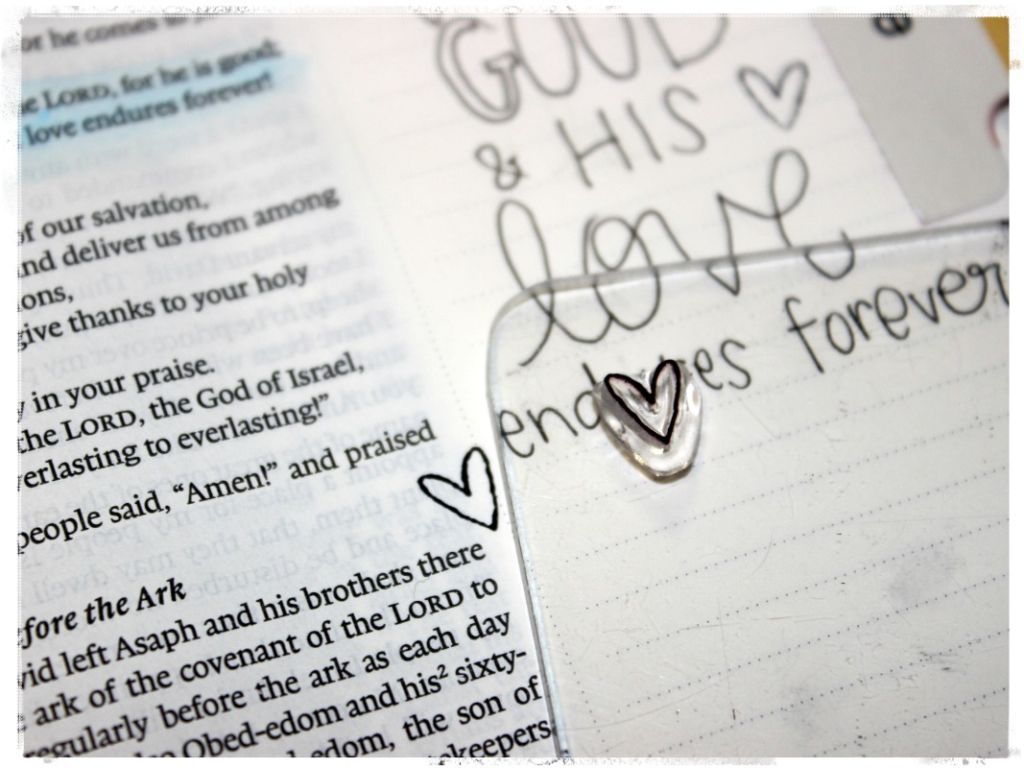 for he comes to
e LORD, for he is good;
love endures forever!
of our salvation,
nd deliver us from among
ons,
give thanks to your holy
y in your praise.
the LORD, the God of Israel,
verlasting to everlasting!”
people said, “Amen!” and praised
fore the Ark
vid left Asaph and his brothers there
ark of the covenant of the LORD to
regularly before the ark as each day
Obed-edom and his² sixty-
edom, the son of
keepers
GOOD
& HIS
love
endures forever